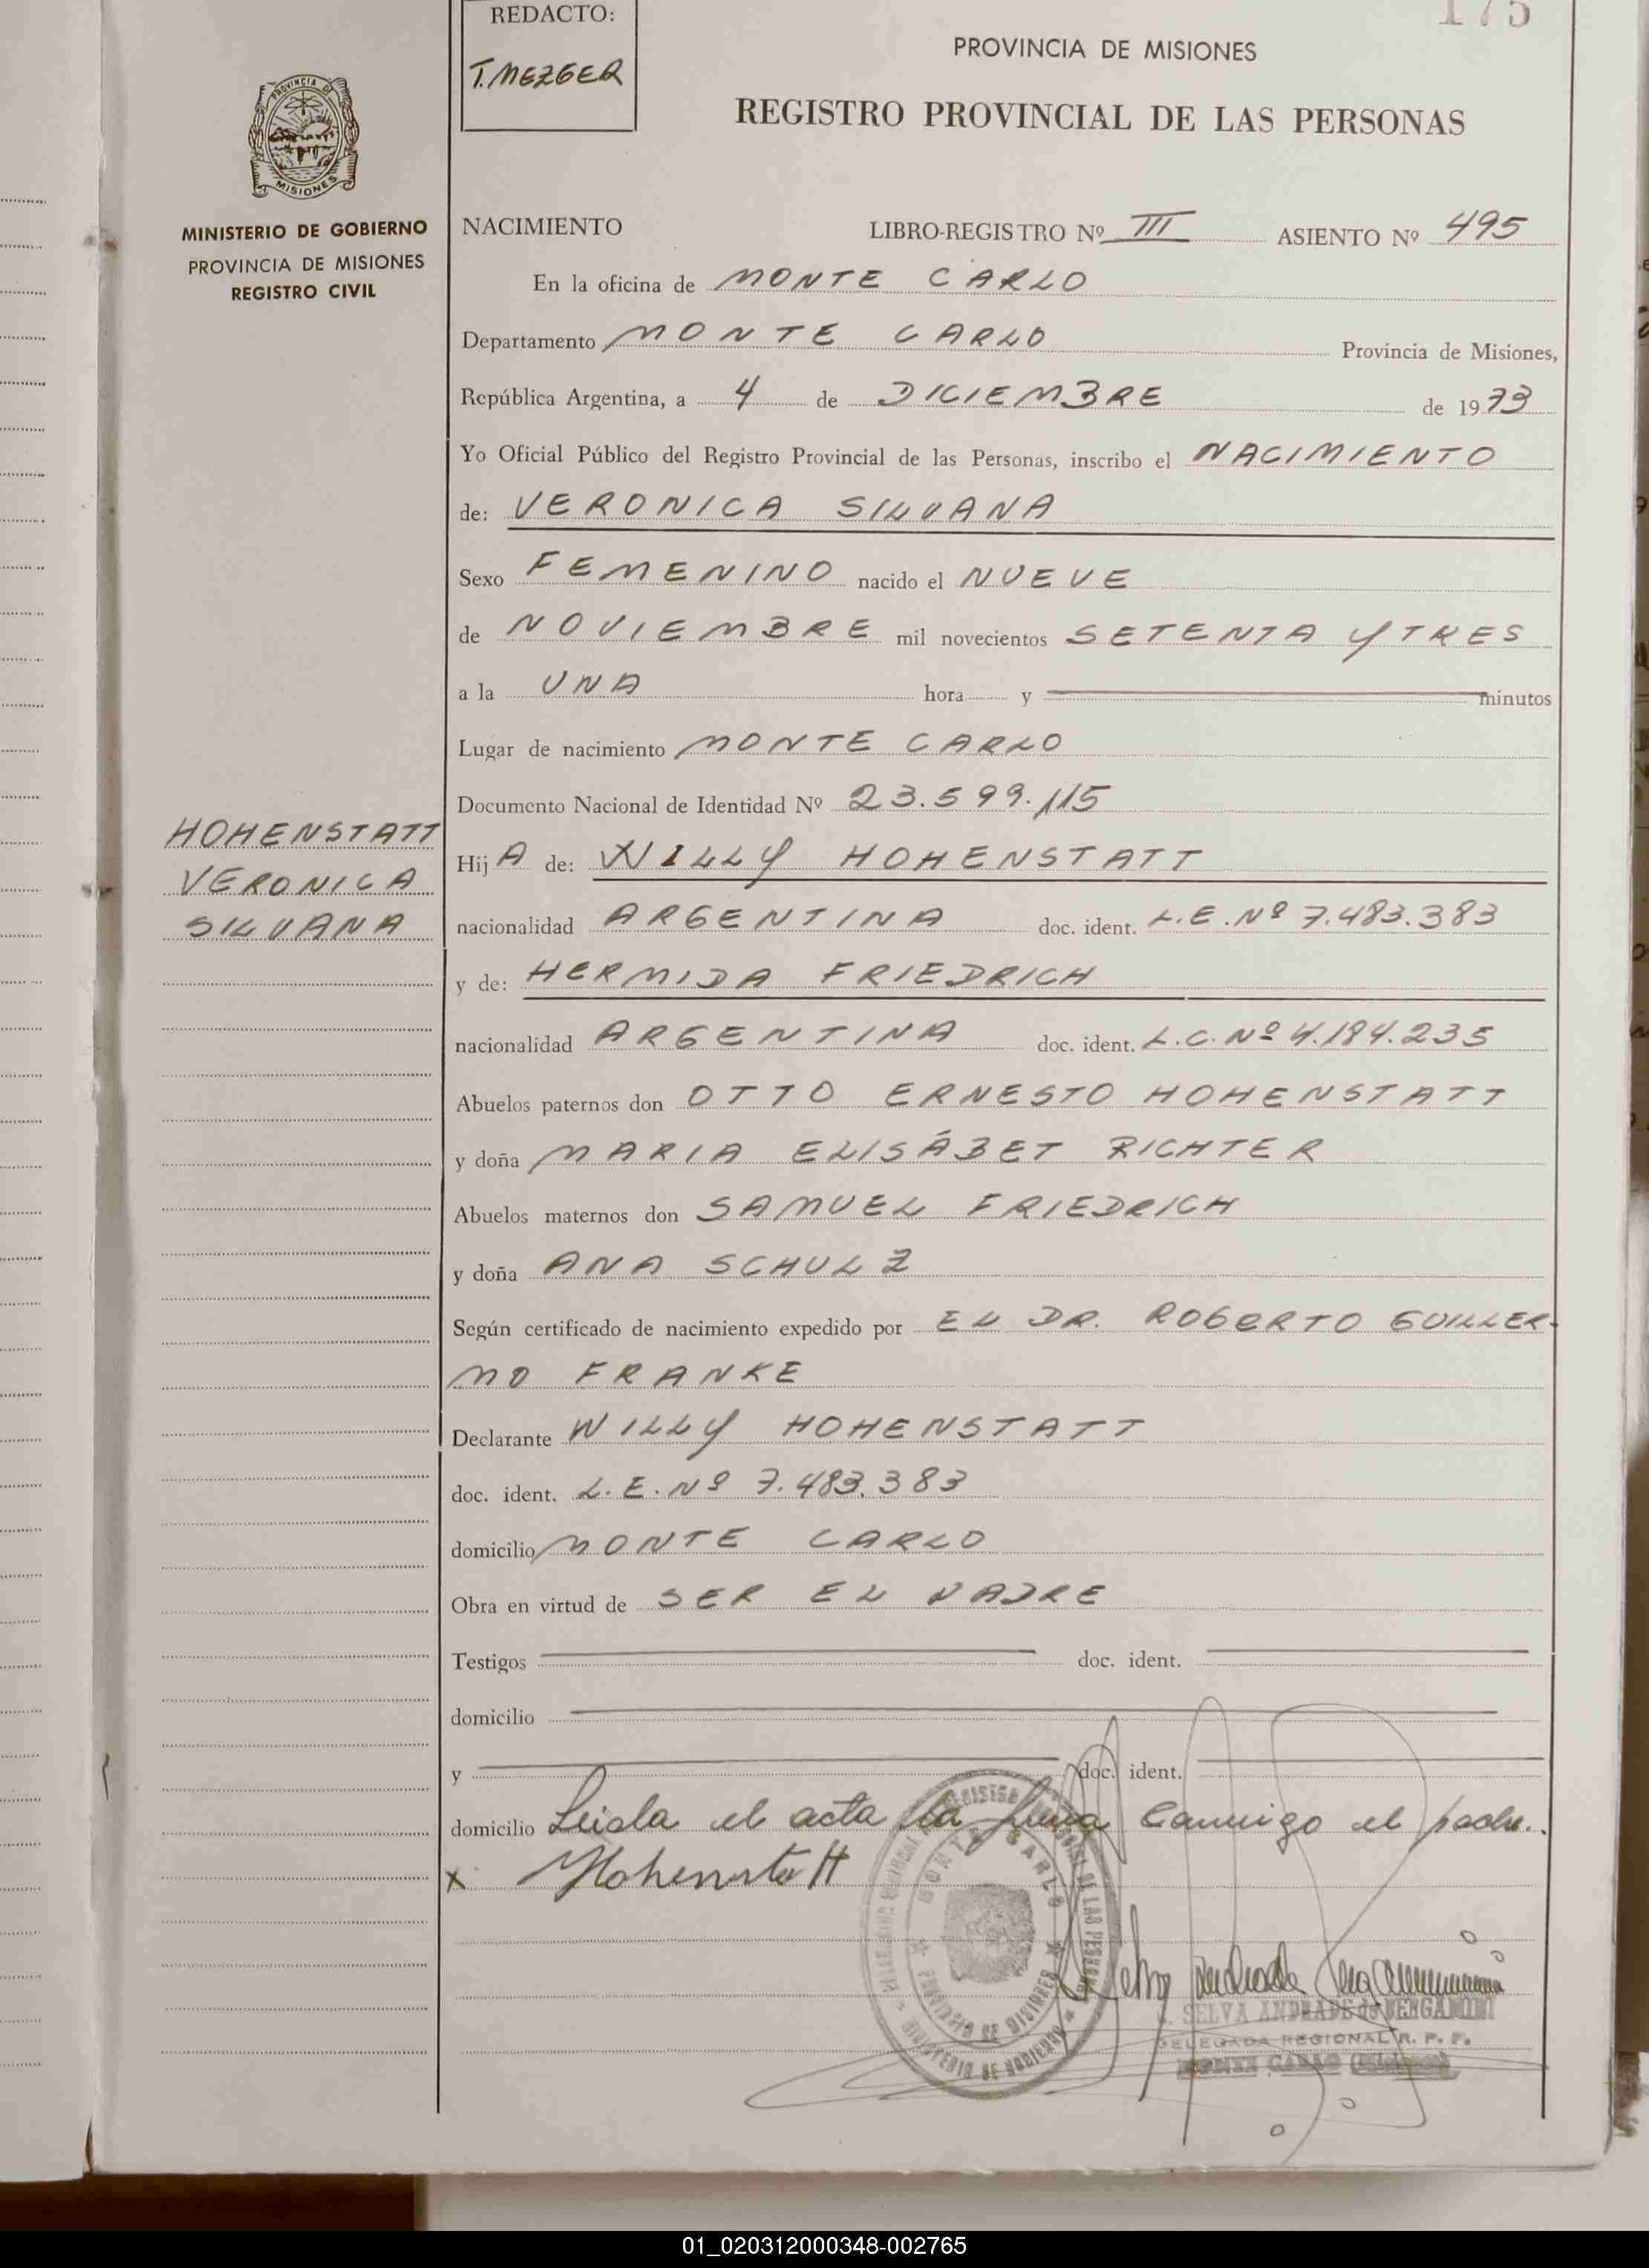 175
REDACTO:
T. MEZGER
PROVINCIA DE MISIONES
REGISTRO PROVINCIAL DE LAS PERSONAS
PROVINCIA DE
MISIONES
MINISTERIO DE GOBIERNO
PROVINCIA DE MISIONES
REGISTRO CIVIL
NACIMIENTO LIBRO-REGISTRO Nº III ASIENTO Nº 495
En la oficina de MONTE CARLO
Departamento MONTE CARLO Provincia de Misiones,
República Argentina, a 4 de DICIEMBRE de 1973
Yo Oficial Público del Registro Provincial de las Personas, inscribo el NACIMIENTO
de: VERONICA SILVANA
Sexo FEMENINO nacido el NUEVE
de NOVIEMBRE mil novecientos SETENTA Y TRES
a la UNA hora y minutos
Lugar de nacimiento MONTE CARLO
Documento Nacional de Identidad Nº 23.599.115
HOHENSTATT
VERONICA
SILVANA
Hij A de: WILLY HOHENSTATT
nacionalidad ARGENTINA doc. ident. L.E. Nº 7.483.383
y de: HERMIDA FRIEDRICH
nacionalidad ARGENTINA doc. ident. L.C. Nº 4.194.235
Abuelos paternos don OTTO ERNESTO HOHENSTATT
y doña MARIA ELISÁBET RICHTER
Abuelos maternos don SAMUEL FRIEDRICH
y doña ANA SCHULZ
Según certificado de nacimiento expedido por EL DR. ROBERTO GUILLER-
MO FRANKE
Declarante WILLY HOHENSTATT
doc. ident. L.E. Nº 7.483.383
domicilio MONTE CARLO
Obra en virtud de SER EL PADRE
Testigos doc. ident.
domicilio
y doc. ident.
domicilio Leida el acta la firma conmigo el padre.
x Hohenstatt
MONTE CARLO
PROVINCIA DE MISIONES
MINISTERIO DE GOBIERNO
SELVA ANDRADE de BERGAMINI
DELEGADA REGIONAL R. P. P.
MONTE CARLO (Misiones)
01_020312000348-002765